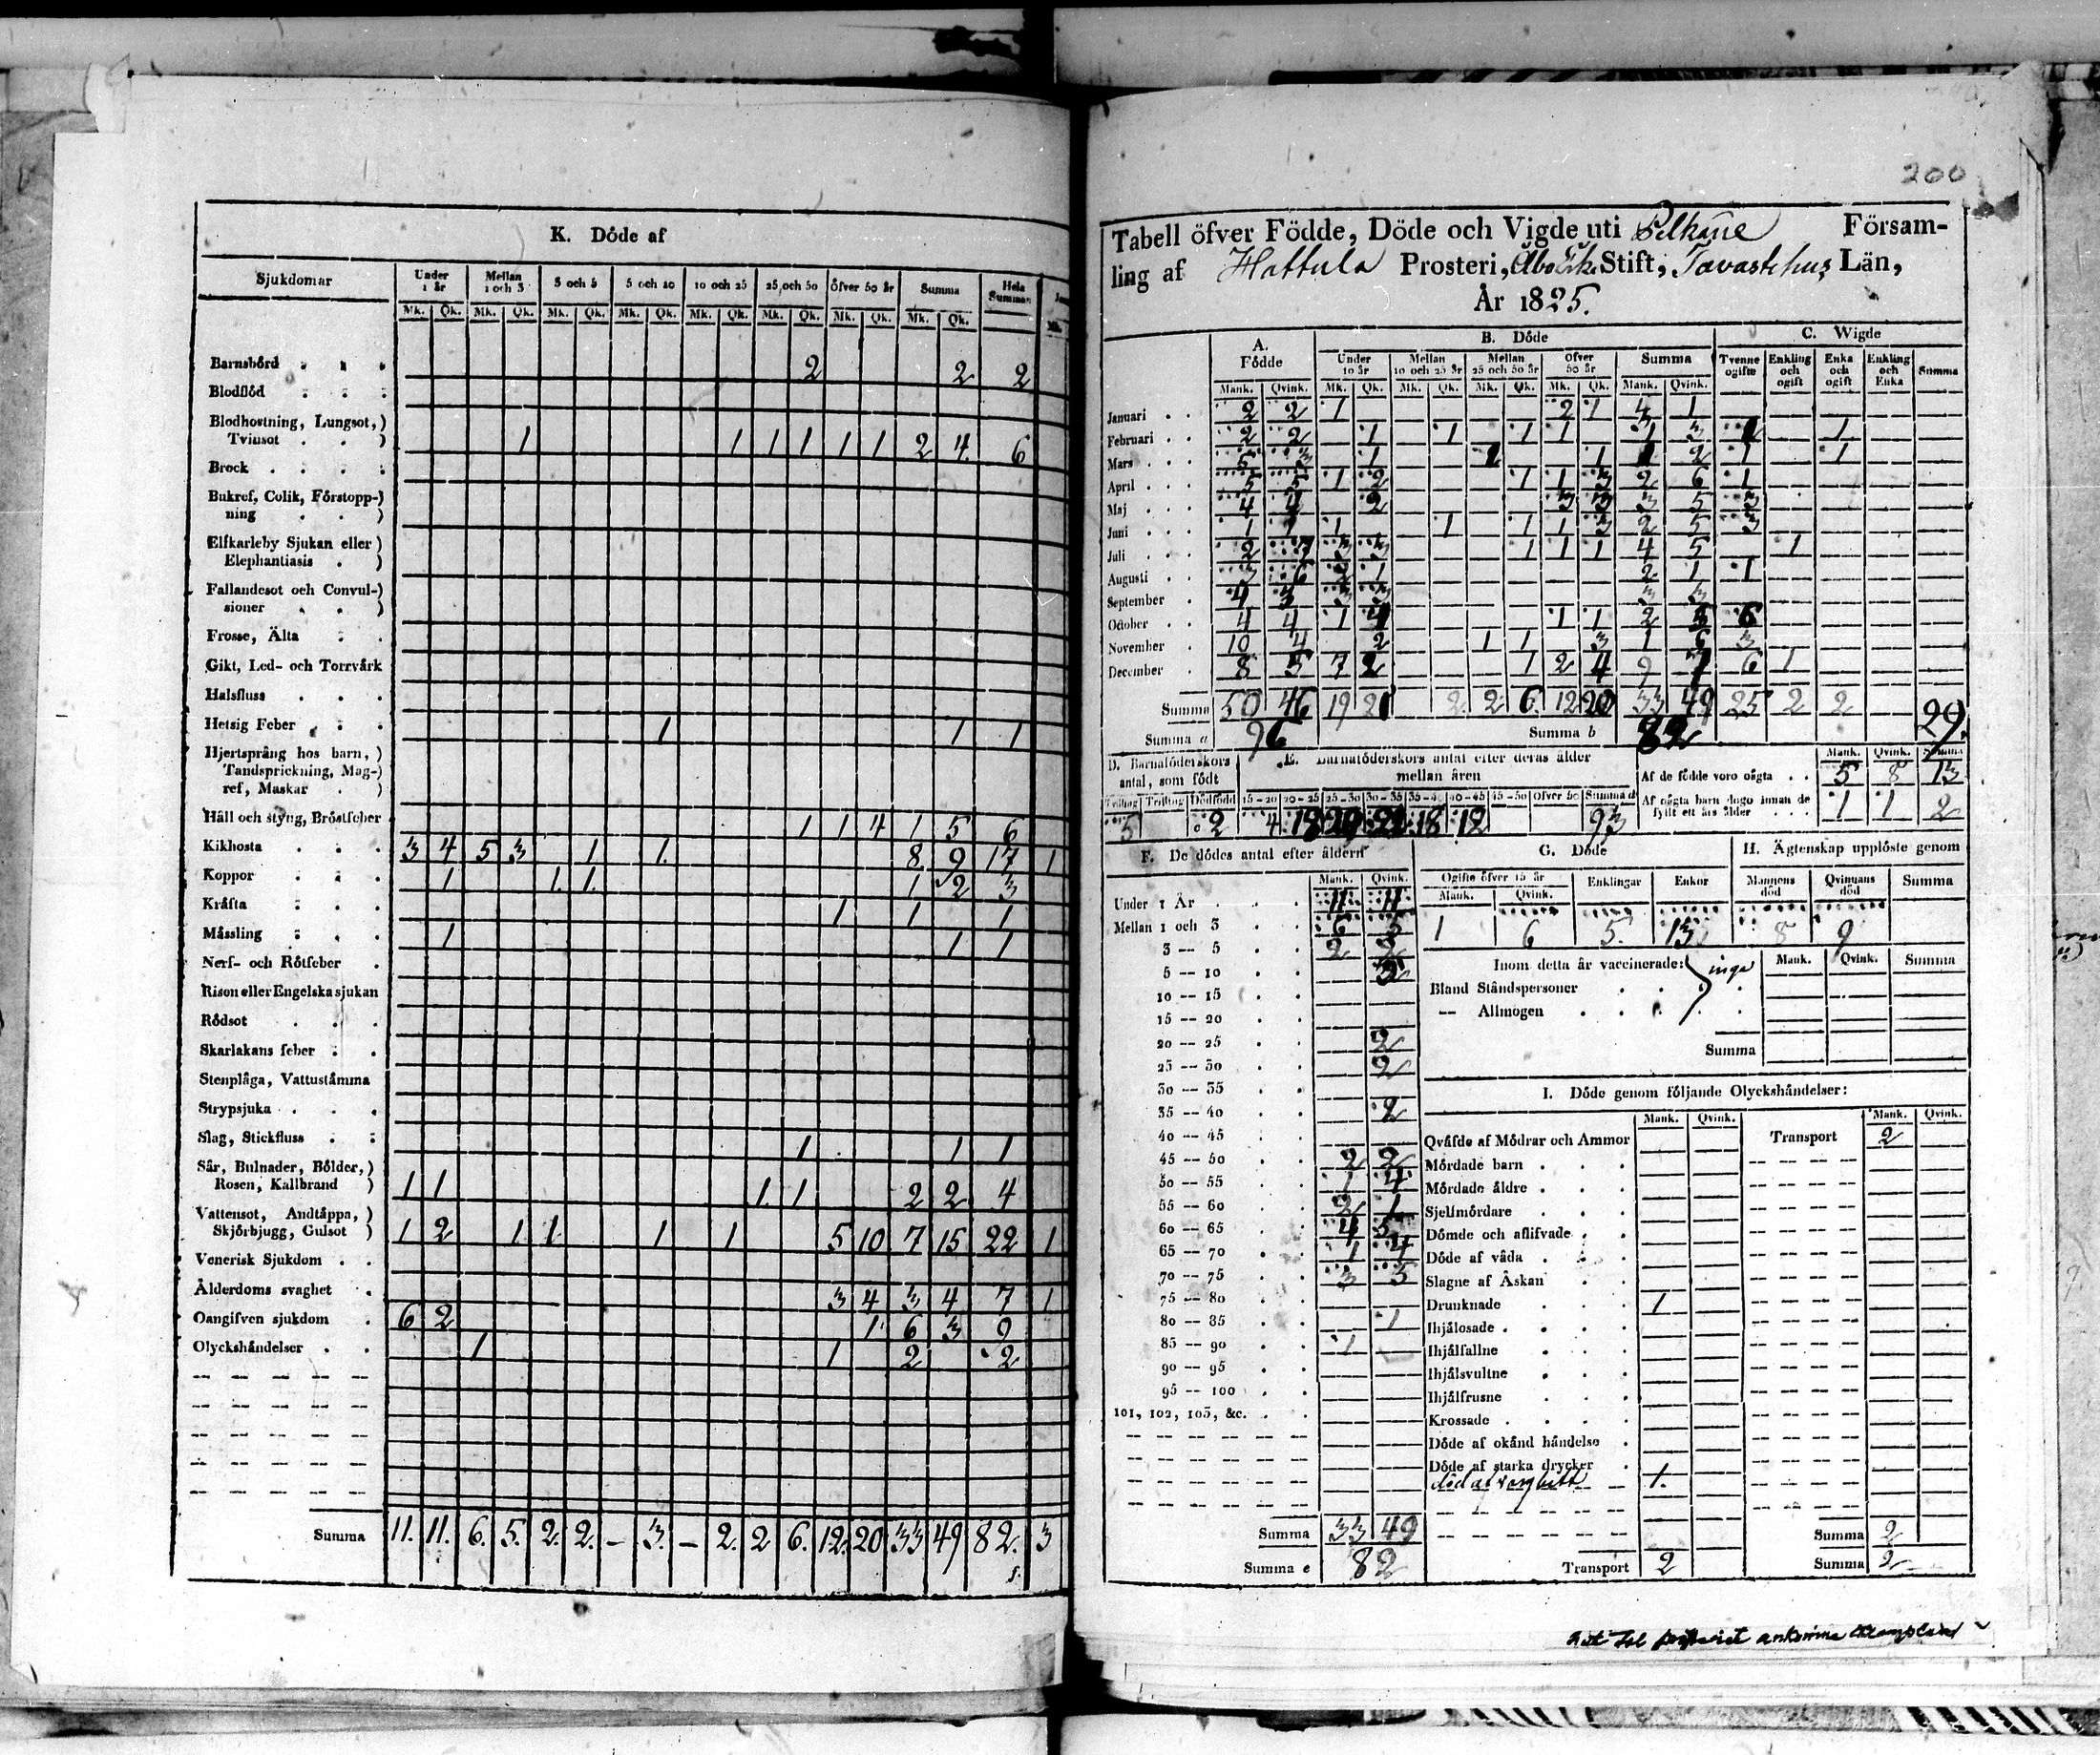 K. Döde af
Sjukdomar | Under 1 år | Mellan 1 och 3 | 3 och 5 | 5 och 10 | 10 och 25 | 25 och 50 | öfver 50 år | Summa | Hela Summan
Mk. Qk. Mk. Qk. Mk. Qk. Mk. Qk. Mk. Qk. Mk. Qk. Mk. Qk. Mk. Qk.
Barnsbörd . . . 2 2 2
Blodflöd . . .
Blodhostning, Lungsot,)
Tvinsot . . ) 1 1 1 1 1 1 2 4. 6
Brock . . . .
Bukref, Colik, Förstopp-)
ning . . )
Elfkarleby Sjukan eller )
Elephantiasis . )
Fallandesot och Convul-)
sioner . . )
Frosse, Älta . .
Gikt, Led- och Torrvärk
Halsfluss . . .
Hetsig Feber . . . 1 1 1
Hjertsprång hos barn, )
Tandsprickning, Mag-)
ref, Maskar . )
Håll och styng, Bröstfeber 1 1 4 1 5 6
Kikhosta . . . 3 4 5 3 1 1. 8 9 17 1
Koppor . . . 1 1. 1. 1 2 3
Kräfta . . . 1 1 1
Mässling . . . 1 1 1
Nerf- och Rötfeber .
Rison eller Engelska sjukan
Rödsot . . .
Skarlakans feber . .
Stenplåga, Vattustämma
Strypsjuka . . .
Slag, Stickfluss . . 1 1 1
Sår, Bulnader, Bölder,)
Rosen, Kallbrand ) 1 1 1. 1 2 2 4
Vattensot, Andtäppa, )
Skjörbjugg, Gulsot ) 1 2 1 1. 1 1 5 10 7 15 22 1
Venerisk Sjukdom . .
Ålderdoms svaghet . 3 4 3 4 7 1
Oangifven sjukdom . 6 2 1 6 3 9
Olyckshändelser . . 1 1 2 2
Summa 11. 11. 6. 5. 2. 2. – 3. – 2. 2 6. 12. 20 33 49 82. 3
200
Tabell öfver Födde, Döde och Vigde uti Pelkäne Försam-
ling af Hattula Prosteri, Åbo Erke Stift, Tavastehus Län,
År 1825.
A. Födde | B. Döde | C. Wigde
Under 10 år | Mellan 10 och 25 år | Mellan 25 och 50 år | Öfver 50 år | Summa | Tvenne ogifte | Enkling och ogift | Enka och ogift | Enkling och Enka | Summa
Mank. Qvink. Mk. Qk. Mk. Qk. Mk. Qk. Mk. Qk. Mank. Qvink.
Januari . . 2 2 1 2 1
Februari . . 2 2 1 1 1 1 1 3 1
Mars . . . 5 3 1 1 2 1 1
April . . . 5 5 1 2 1 1 3 2 6 1
Maj . . . 4 4 2 3 3 3 5 3
Juni . . . 1 1 1 1 1 1 3 2 5 3
Juli . . . 2 7 3 3 1 1 1 4 5 1
Augusti . . 3 6 2 1 2 1 1
September . 4 3 3 3 3 3
October . 4 4 1 4 1 1 2 5 6
November . 10 4 2 1 1 3 1 6 3
December . 8 5 7 2 1 2 4 9 7 6 1
Summa 50 46 19 21 2 2 6. 12 20 33 49 25 2 2 29.
Summa a 96 Summa b 82
D. Barnaföderskors antal, som födt | E. Barnaföderskors antal efter deras ålder mellan åren | Mank. Qvink. Summa
Af de födde voro oägta . . 5 8 13
Tvilling Trilling Dödfödd 15–20 20–25 25–30 30–35 35–40 40–45 45–50 Öfver 50 Summa d
Af oägta barn dogo innan de
fyllt ett års ålder . . . 1 1 2
5 2 4 18 18 12 93
F. De dödes antal efter åldern
Mank. Qvink.
Under 1 År . . . 11 11
Mellan 1 och 3 . . 6 5
3 — 5 . . 2 2
5 — 10 . . 3
10 — 15 . .
15 — 20 . .
20 — 25 . . 2
25 — 30 . . 2
30 — 35 . .
35 — 40 . . 2
40 — 45 . .
45 — 50 . . 2 2
50 — 55 . . 1 4
55 — 60 . . 2 1
60 — 65 . . 4 5
65 — 70 . . 1 4
70 — 75 . . 3 5
75 — 80 . .
80 — 85 . . 1
85 — 90 . . 1
90 — 95 . .
95 — 100 . .
101, 102, 103, &c. . .
Summa 33 49
Summa e 82
G. Döde | H. Ägtenskap upplöste genom
Ogifte öfver 15 år | Enklingar | Enkor | Mannens död | Qvinnans död | Summa
Mank. Qvink.
1 6 5. 13 8 9
Inom detta år vaccinerade: inga Mank. Qvink. Summa
Bland Ståndspersoner . . .
— Allmogen . . . .
Summa
I. Döde genom följande Olyckshändelser:
Mank. Qvink. Mank. Qvink.
Qväfde af Mödrar och Ammor Transport 2
Mördade barn . . .
Mördade äldre . . .
Sjelfmördare . . .
Dömde och aflifvade . .
Döde af våda . . .
Slagne af Åskan . .
Drunknade . . . 1
Ihjälosade . . . .
Ihjälfallne . . .
Ihjälsvultne . . .
Ihjälfrusne . . .
Krossade . . . .
Döde af okänd händelse .
Döde af starka drycker .
död af vargbett 1.
Summa 2
Transport 2 Summa 2